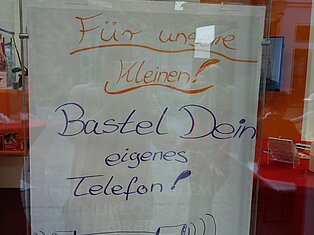 Für unsere
Kleinen!
Bastel Dein
eigenes
Telefon!